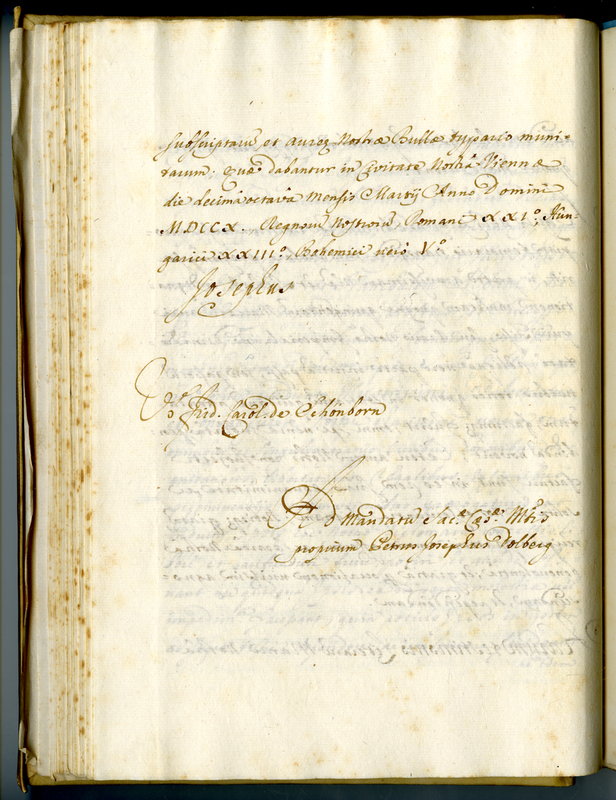 subscriptarū et aureę Nostræ Bullæ typario muni-
tarum; quæ dabantur in Civitate Nostrâ Viennæ
die decimâ octavâ Mensis Martij Anno Domini
MDCCX. Regnorū Nostrorū, Romani XXIº, Hun-
garici XXIIIº, Bohemici verò Vº
Josephus
Frid. Carol. de Schönborn
Ad Mandatū Sac.æ Cæs.æ Mtis
proprium Petrus Josephus Dolberg